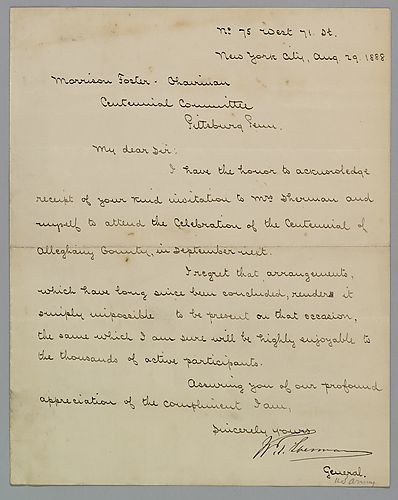 No 75 West 71. St.
New York City, Aug. 29. 1888
Morrison Foster - Chairman
Centennial Committee
Pittsburg Penn.
My dear Sir:
I have the honor to acknowledge
receipt of your kind invitation to Mrs Sherman and
myself to attend the Celebration of the Centennial of
Alleghany County, in September next.
I regret that arrangements,
which have long since been concluded, renders it
simply impossible to be present on that occasion,
the same which I am sure will be highly enjoyable to
the thousands of active participants.
Assuring you of our profound
appreciation of the compliment I am,
Sincerely yours
W. T. Sherman
General.
U S Army